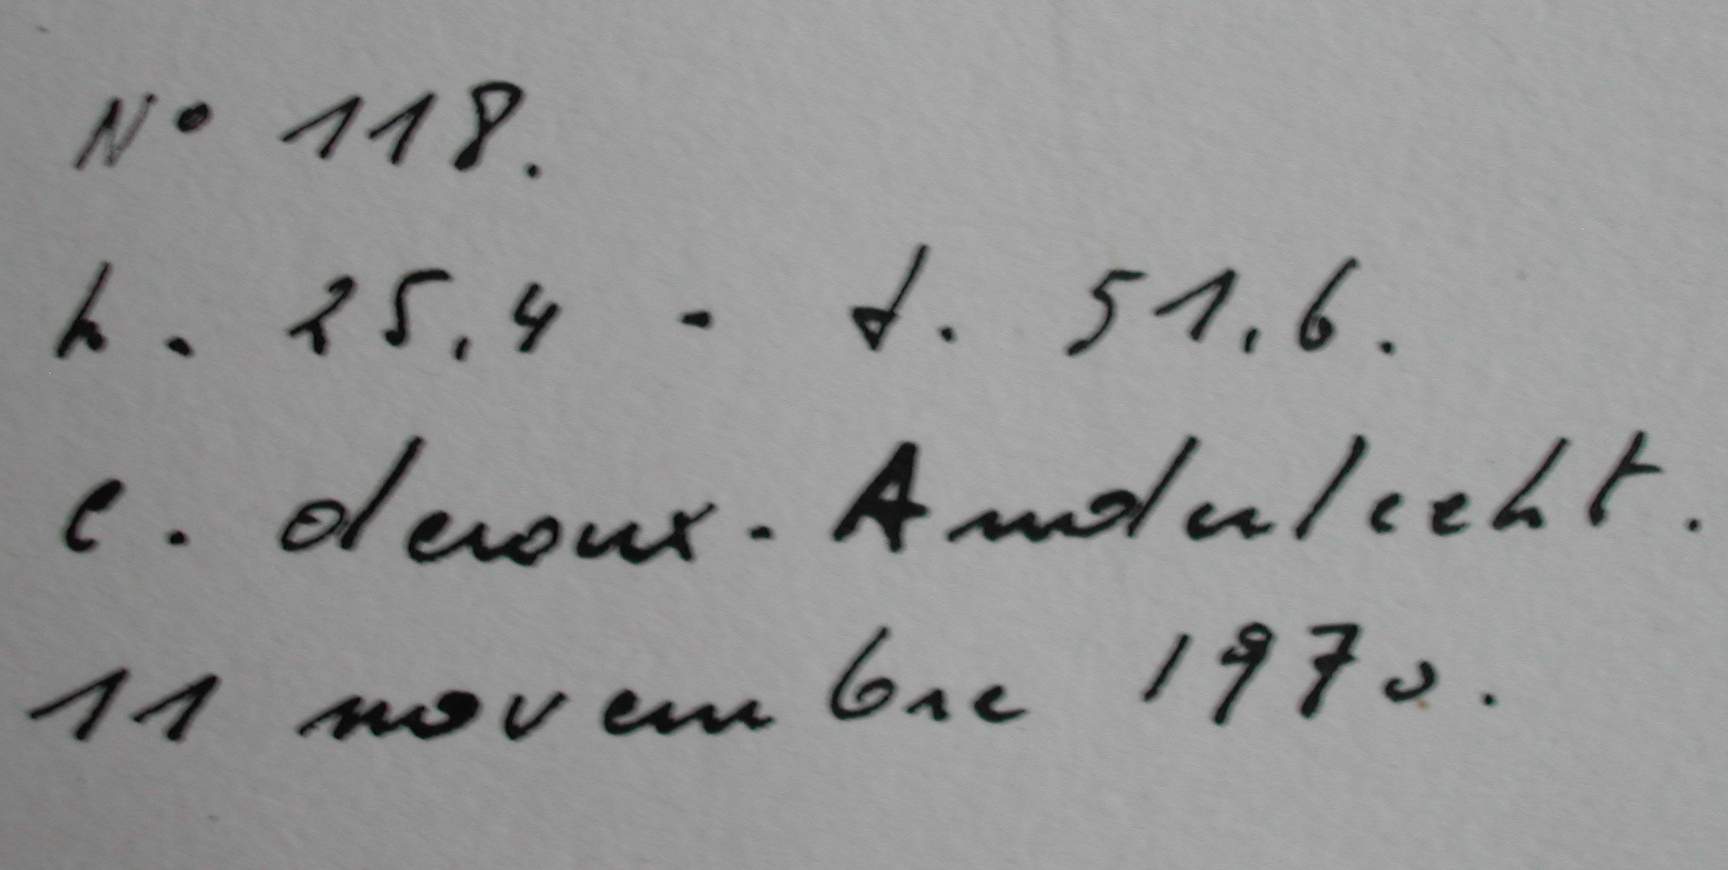 N° 118.
h. 25,4 - d. 51,6.
c. deroux. Anderlecht.
11 novembre 1970.